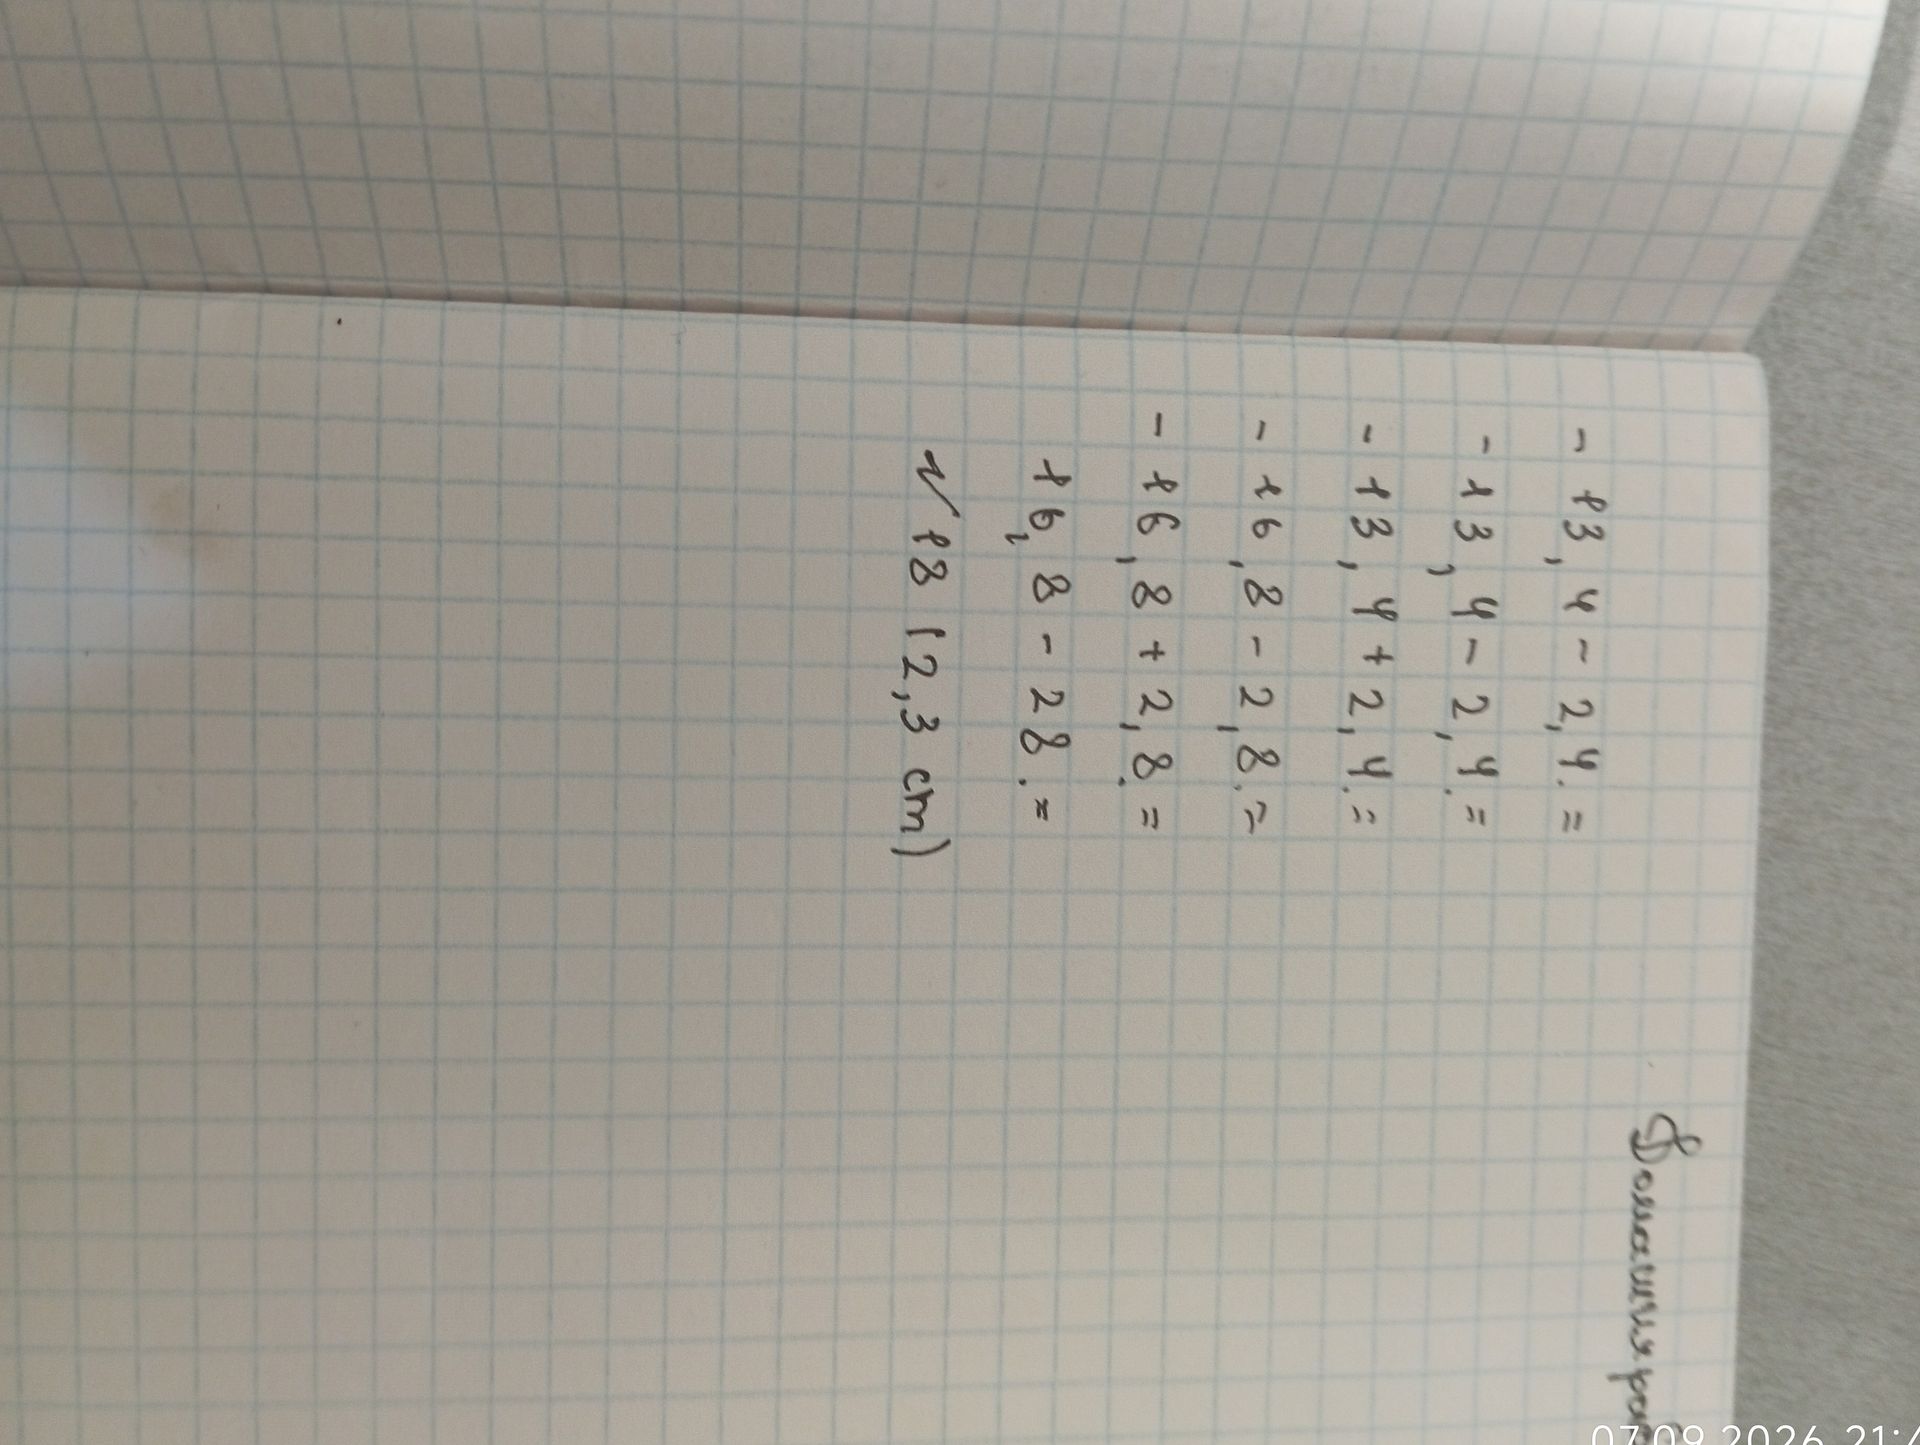 Домашня роб
- 13,4 - 2,4. =
- 13,4 - 2,4. =
- 13,4 + 2,4. =
- 16,8 - 2,8. =
- 16,8 + 2,8. =
16,8 - 28. =
√ 18 (2,3 cm)
07.09.2026 21:4